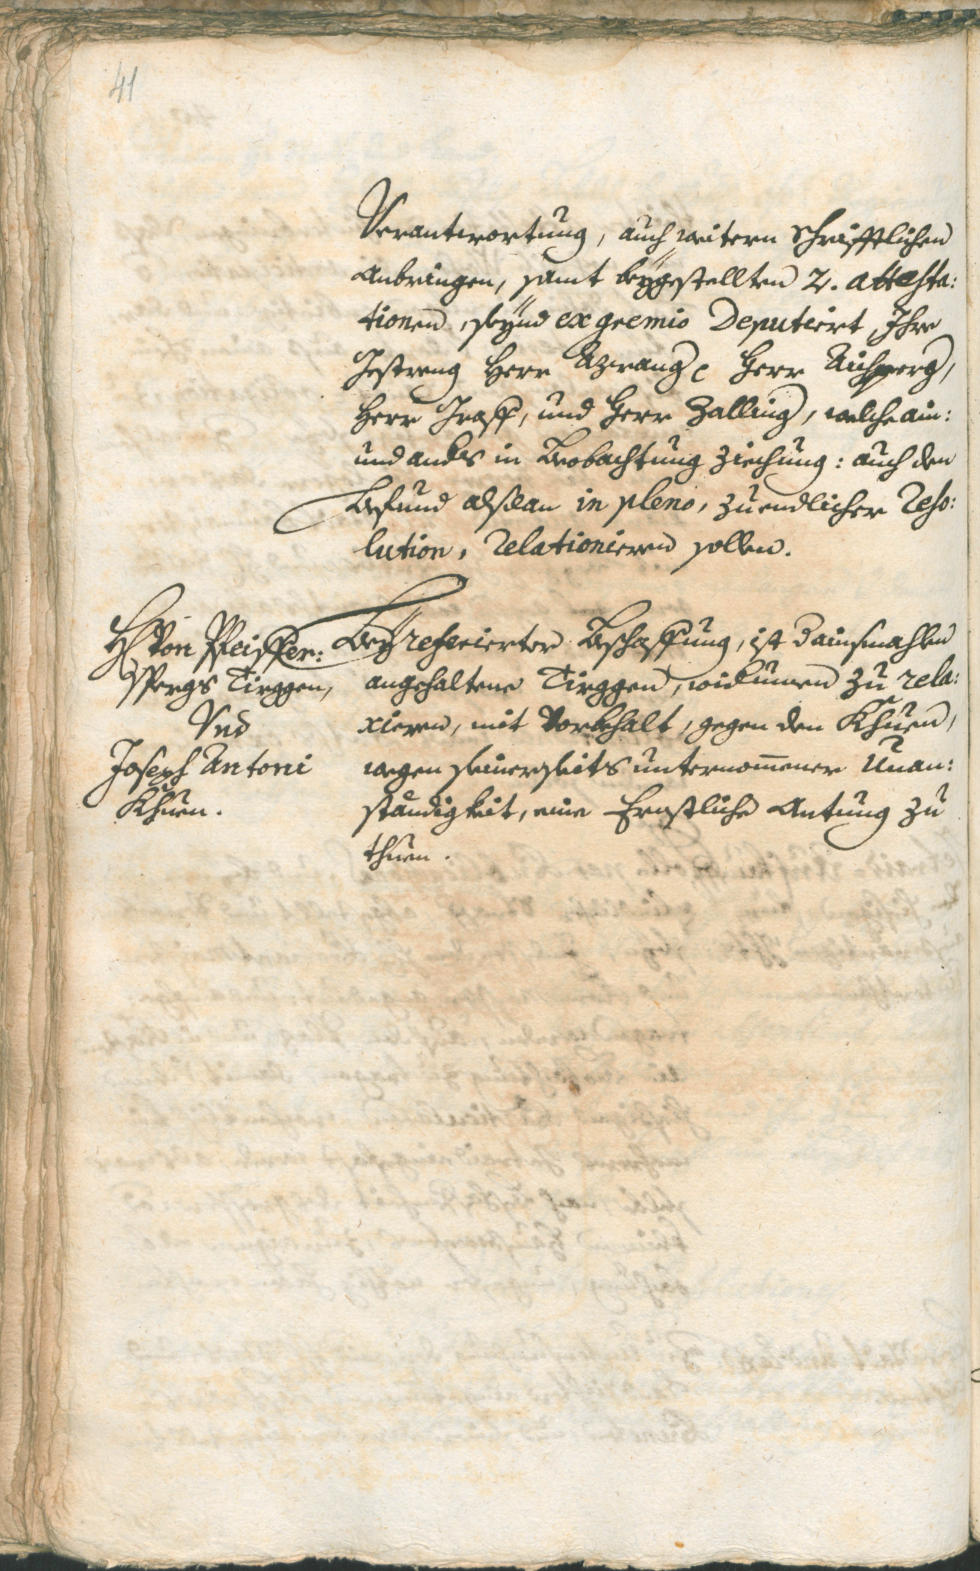 41
Verantworttung, auch weitern schrifftlichen
Anbringen, samt beÿgestellten 2. attesta:
tionen, seÿnd ex gremio Deputiert, Ihro
Gestreng Herr Azwang, Herr Aichperg,
Herr Graff, und Herr Zalling, welche ain:
und anders in Beobachtung ziechung: auch den
Befund alßdan in pleno, zu endlicher Reso:
lution, relationieren sollen.
H von Pfeiffer:
spergs Tirggen,
Und
Joseph Antoni
Khuen.
Beÿ referierter Beschaffung, ist dainsmahlen
angehaltene Tirggen, widumen zu rela:
xieren, mit Vorbehalt, gegen den Khuen,
wegen seinerseits unternomener Unan:
ständigkeit, eine Ernstliche Antung zu
thuen.